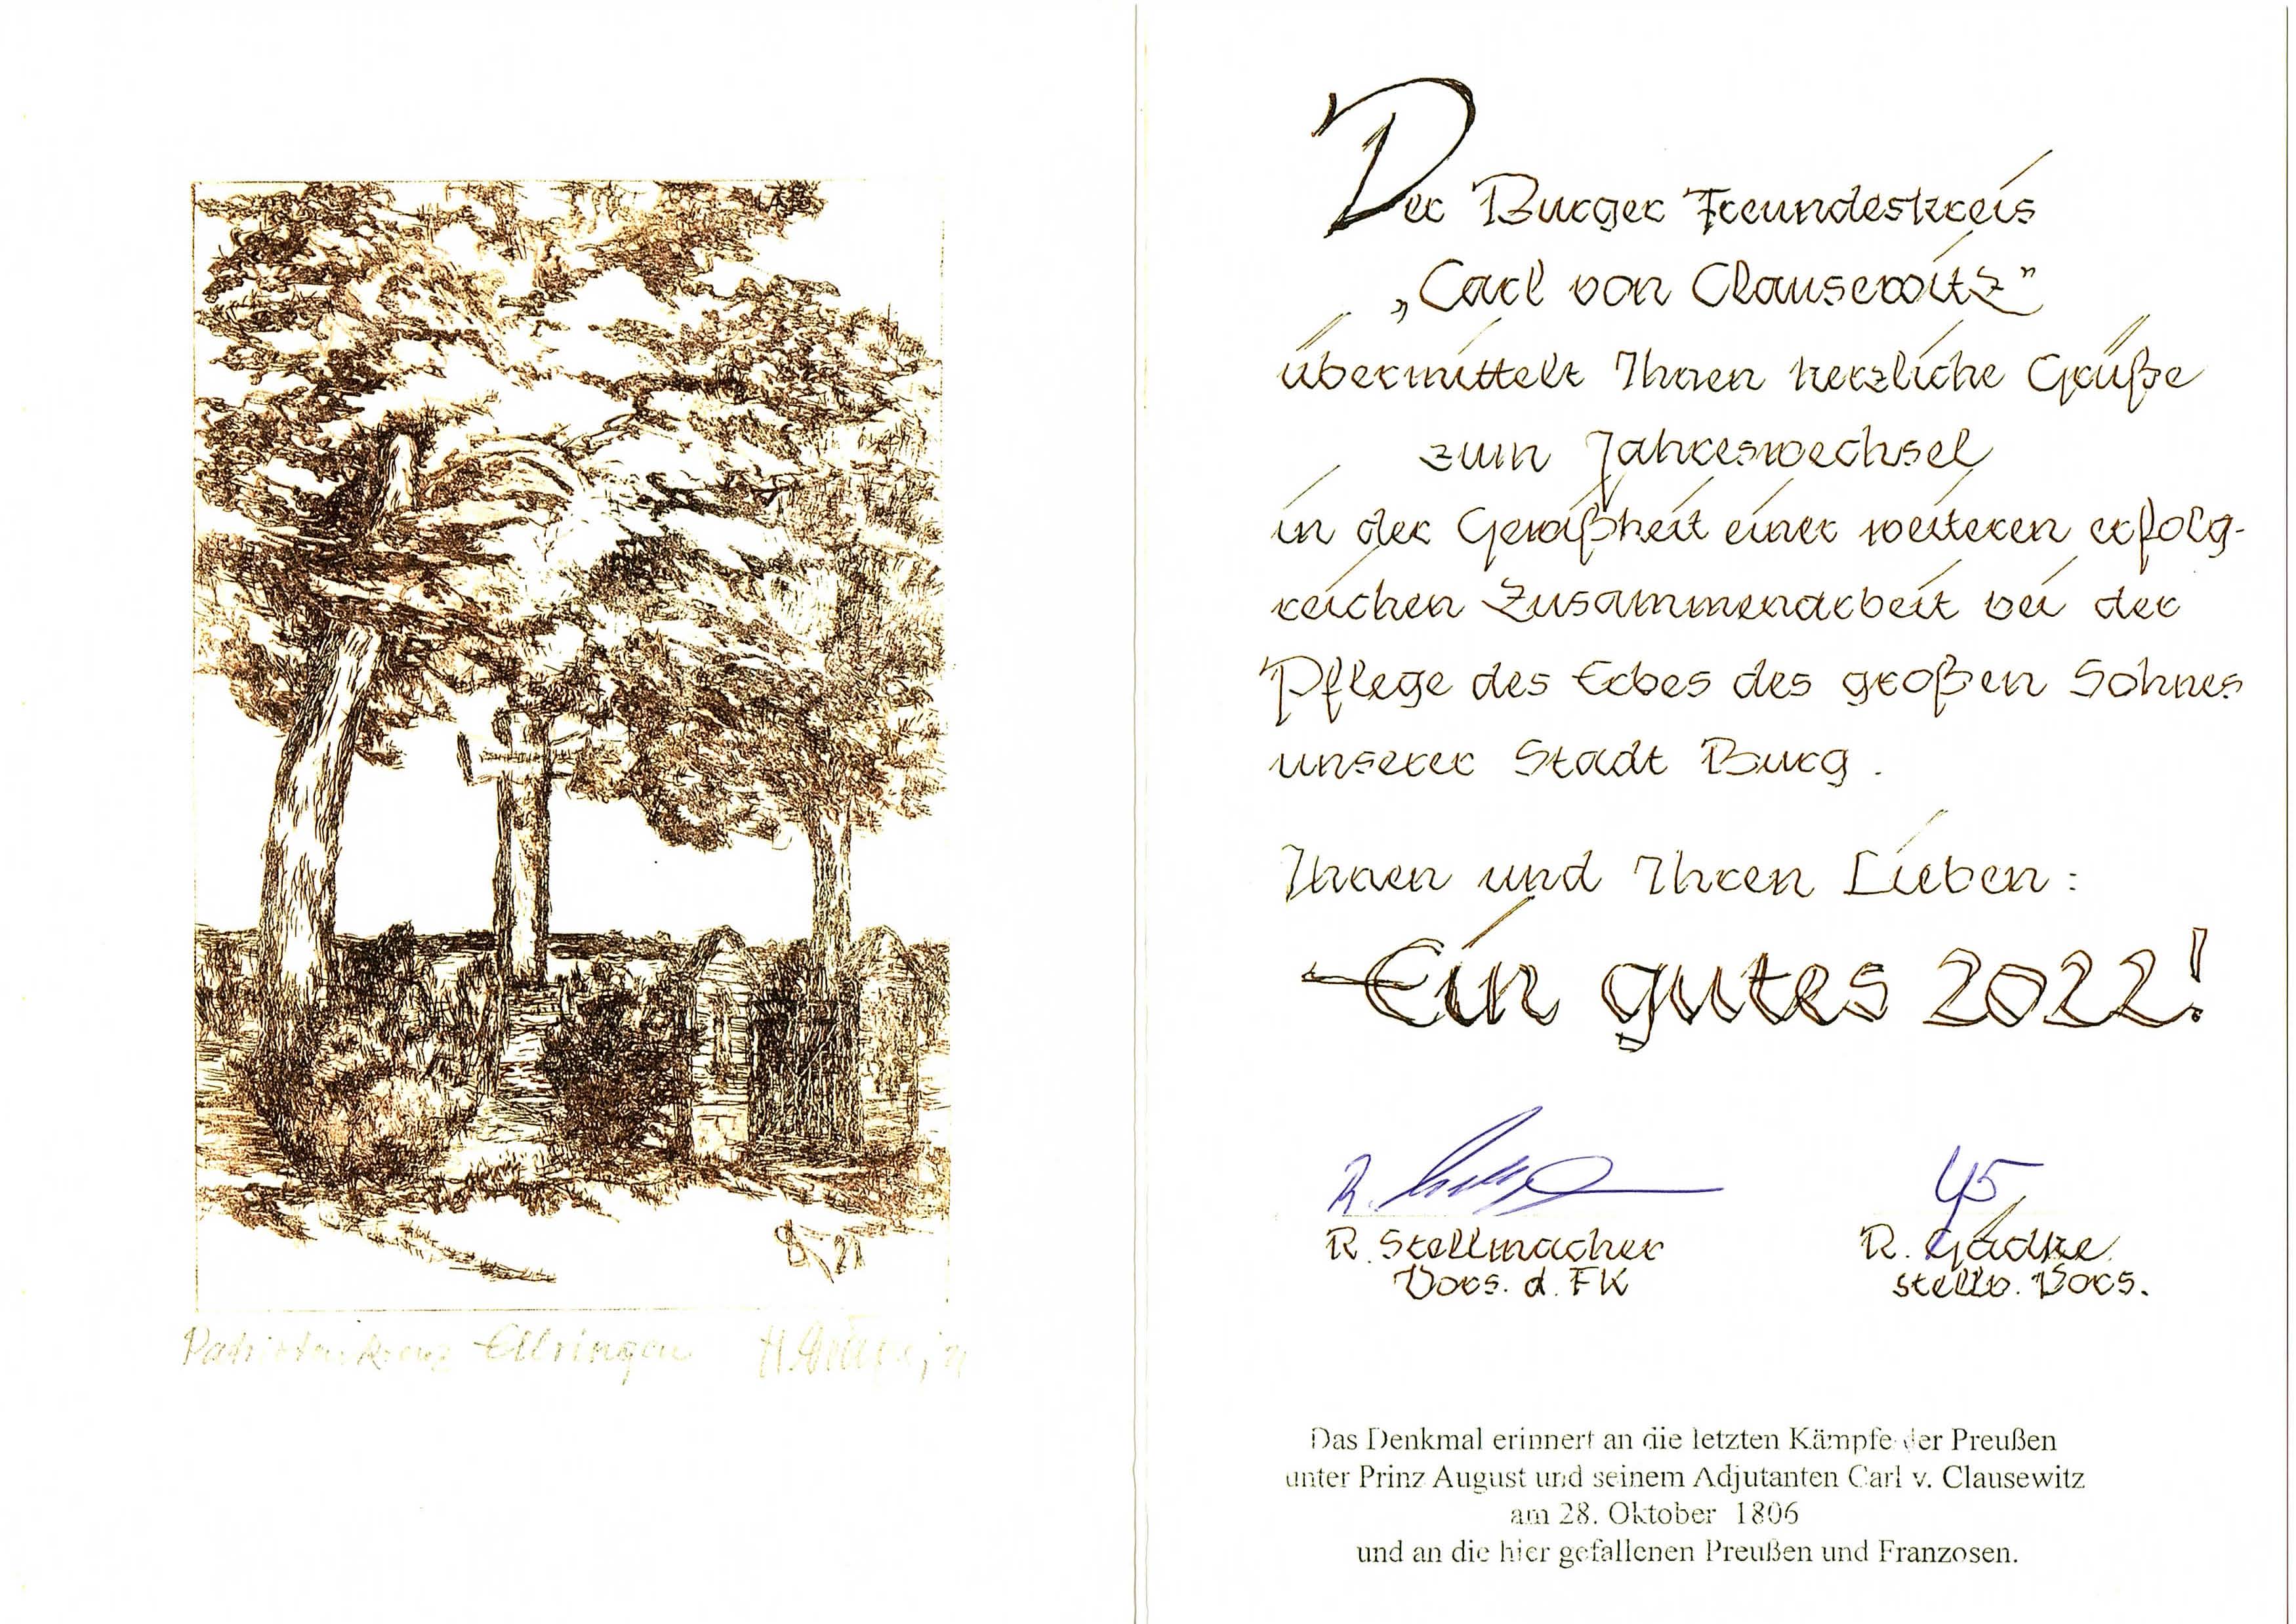 Patriotenkreuz Ellringen
Der Burger Freundeskreis
„Carl von Clausewitz”
übermittelt Ihnen herzliche Grüße
zum Jahreswechsel
in der Gewißheit einer weiteren erfolg-
reichen Zusammenarbeit bei der
Pflege des Erbes des großen Sohnes
unserer Stadt Burg.
Ihnen und Ihren Lieben:
Ein gutes 2022!
R. Stellmacher
Vors. d. FK
R. Gädke
stellv. Vors.
Das Denkmal erinnert an die letzten Kämpfe der Preußen
unter Prinz August und seinem Adjutanten Carl v. Clausewitz
am 28. Oktober 1806
und an die hier gefallenen Preußen und Franzosen.